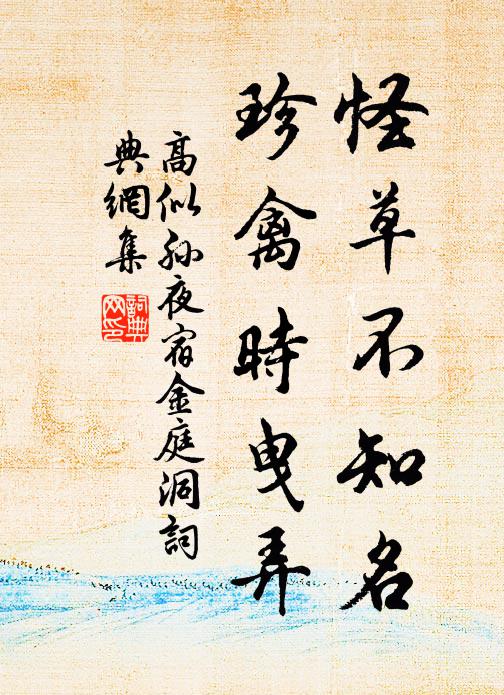 怪草不知名
珍禽時曳弄
高似孫夜宿金庭洞詞
典網集
詞典
网印